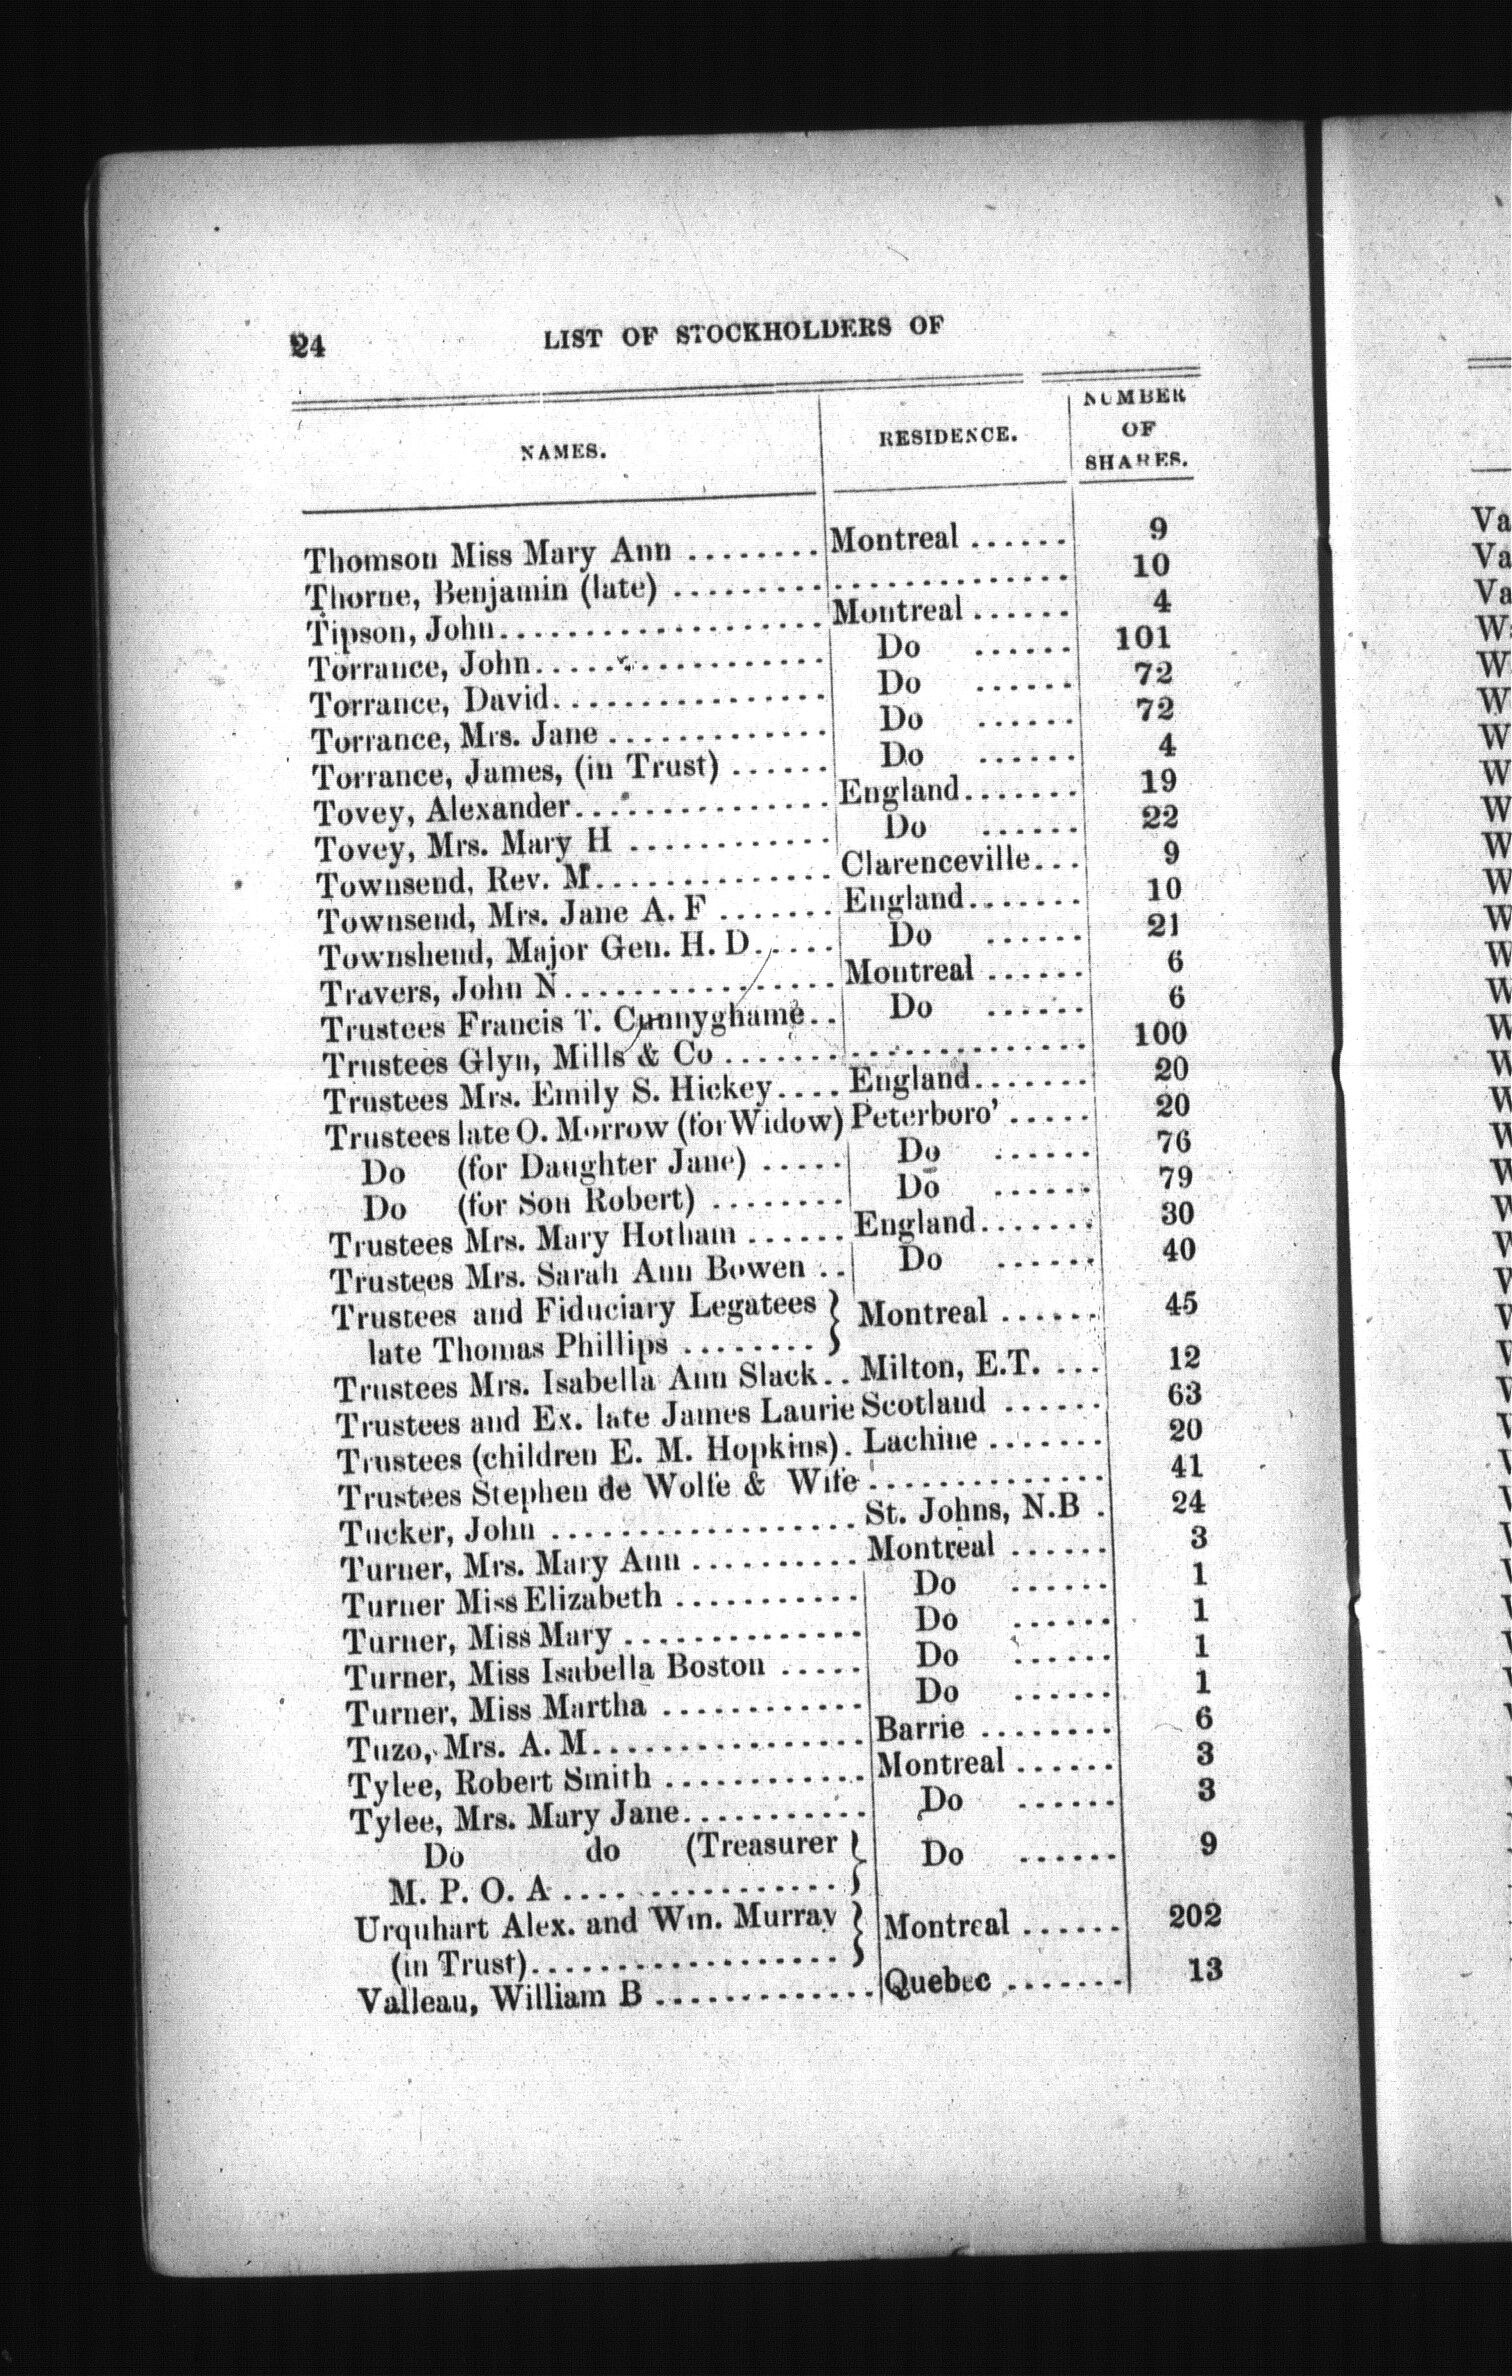 24 LIST OF STOCKHOLDERS OF
NAMES. RESIDENCE. NUMBER OF SHARES.
Thomson Miss Mary Ann ........ Montreal ...... 9
Thorne, Benjamin (late) ....................... 10
Tipson, John................... Montreal ...... 4
Torrance, John................. Do ...... 101
Torrance, David................ Do ...... 72
Torrance, Mrs. Jane ............. Do ...... 72
Torrance, James, (in Trust) ...... Do ...... 4
Tovey, Alexander............... England....... 19
Tovey, Mrs. Mary H ............ Do ...... 22
Townsend, Rev. M.............. Clarenceville... 9
Townsend, Mrs. Jane A. F ....... England....... 10
Townshend, Major Gen. H. D..... Do ...... 21
Travers, John N................ Montreal ...... 6
Trustees Francis T. Cunnyghame.. Do ...... 6
Trustees Glyn, Mills & Co ..................... 100
Trustees Mrs. Emily S. Hickey.... England....... 20
Trustees late O. Morrow (for Widow) Peterboro' ..... 20
Do (for Daughter Jane) ..... Do ...... 76
Do (for Son Robert) ........ Do ...... 79
Trustees Mrs. Mary Hotham ...... England....... 30
Trustees Mrs. Sarah Ann Bowen .. Do ...... 40
Trustees and Fiduciary Legatees } Montreal ...... 45
late Thomas Phillips ........ }
Trustees Mrs. Isabella Ann Slack.. Milton, E.T. ... 12
Trustees and Ex. late James Laurie Scotland ...... 63
Trustees (children E. M. Hopkins). Lachine ....... 20
Trustees Stephen de Wolfe & Wife .............. 41
Tucker, John .................. St. Johns, N.B . 24
Turner, Mrs. Mary Ann .......... Montreal ...... 3
Turner Miss Elizabeth ........... Do ...... 1
Turner, Miss Mary .............. Do ...... 1
Turner, Miss Isabella Boston ..... Do ...... 1
Turner, Miss Martha ............ Do ...... 1
Tuzo, Mrs. A. M................ Barrie ........ 6
Tylee, Robert Smith ............ Montreal ...... 3
Tylee, Mrs. Mary Jane........... Do ...... 3
Do do (Treasurer } Do ...... 9
M. P. O. A ................ }
Urquhart Alex. and Wm. Murray } Montreal ...... 202
(in Trust).................. }
Valleau, William B ............. Quebec ....... 13
Va
Va
Va